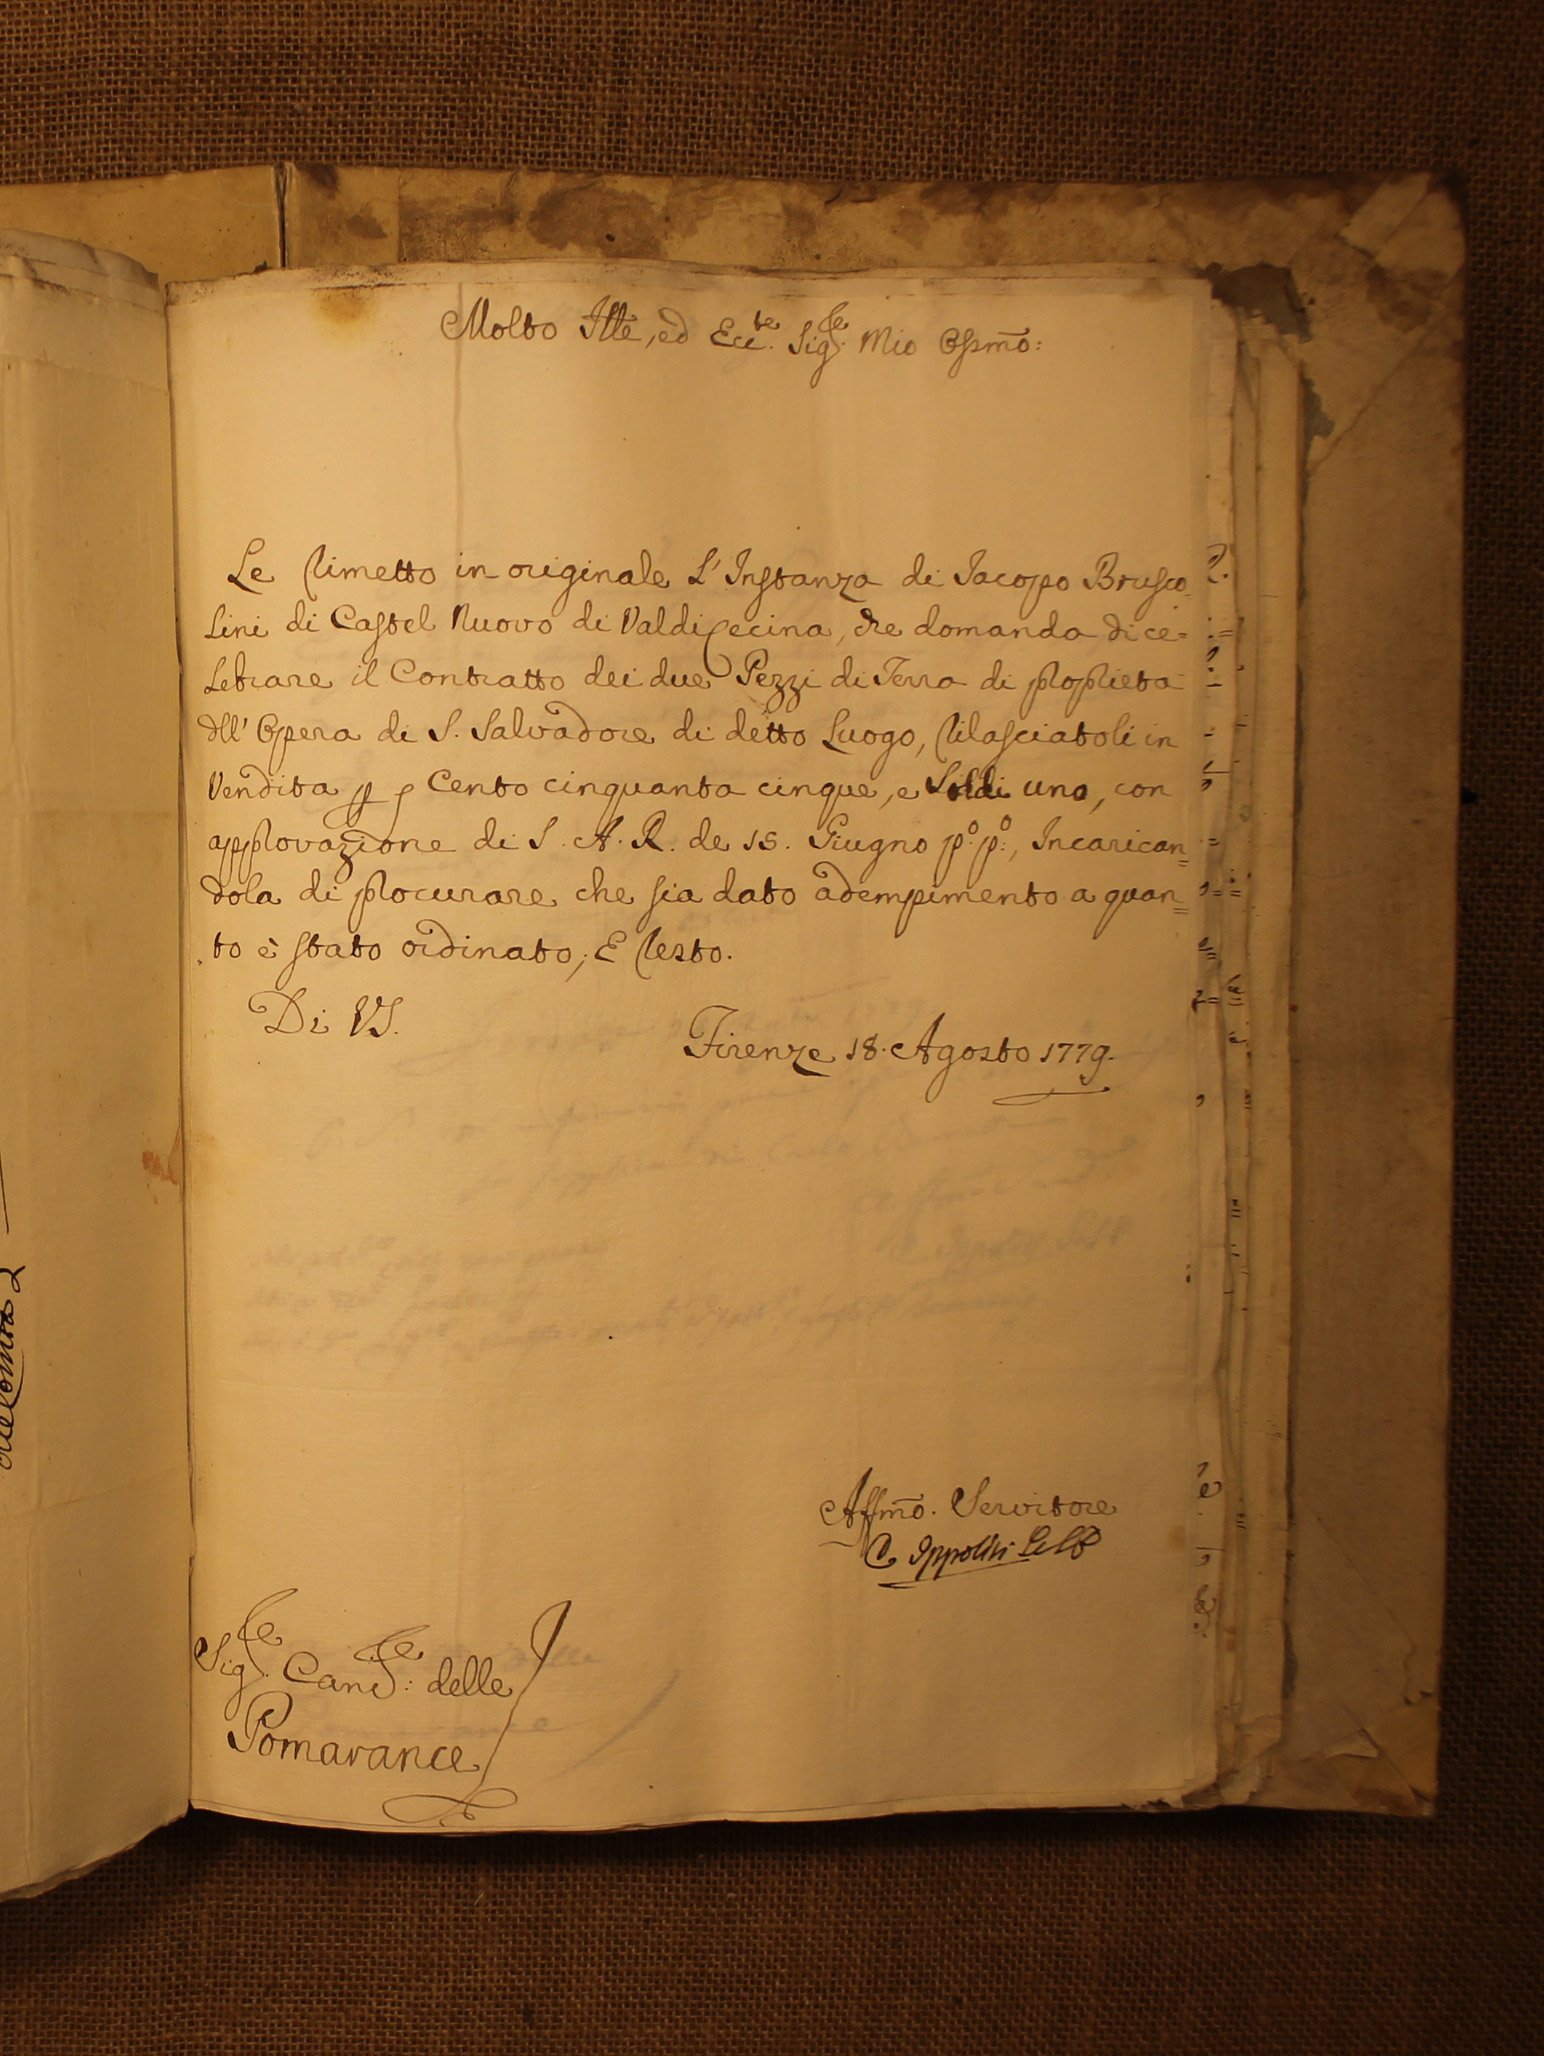 Molto Ill:e, ed Ecc:te Sig:re Mio Oss:mo:
Le Rimetto in originale L'Instanza di Jacopo Brusco=
Lini di Castel Nuovo di Valdicecina, che domanda di ce=
Lebrare il Contratto dei due Pezzi di Terra di proprietà
dell' Opera di S. Salvadore di detto Luogo, rilasciatoli in
Vendita p Cento cinquanta cinque, e Soldi uno, con
approvazione di S. A. R. de 15. Giugno p:o p:o, Incarican=
dola di procurare che sia dato adempimento a quan=
to è stato ordinato, E Resto.
Di VS.
Firenze 18. Agosto 1779.
Aff:mo. Servitore
C. Ippoliti
Sig:re Canc:re delle
Pomarance